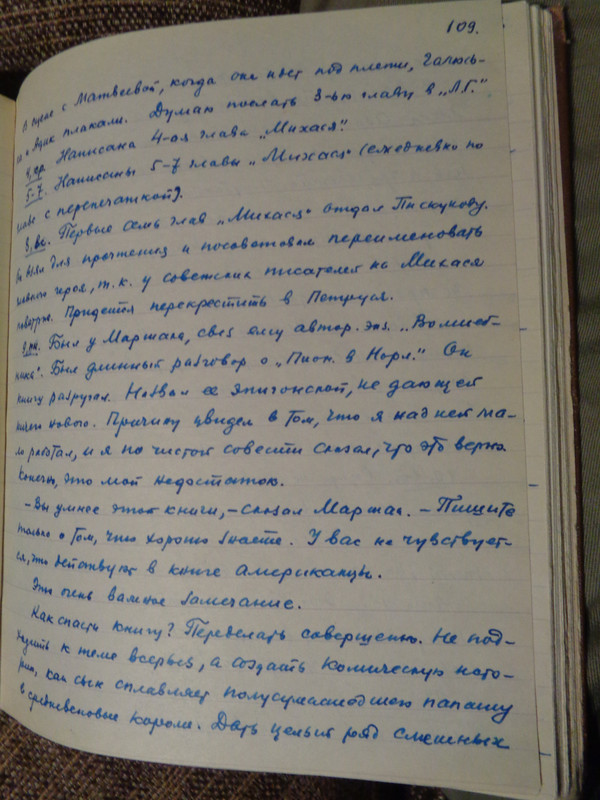 109.
В сцене с Матвеевой, когда она поет под плети, Галюсь-
ка и Адик плакали. Думаю послать 3-ью главу в „Л.Г."
4, ср. Написана 4-ая глава „Михася".
5-7. Написаны 5-7 главы „Михася" (ежедневно по
главе с перепечаткой).
8, вс. Первые семь глав „Михася" отдал Пискунову.
Он взял для прочтения и посоветовал переименовать
главного героя, т.к. у советских писателей на Михася
повторы. Придется перекрестить в Петруся.
9, пн. Был у Маршака, свез ему автор. экз. „Волшеб-
ника". Был длинный разговор о „Пион. в Норл." Он
книгу разругал. Назвал ее эпигонской, не дающей
ничего нового. Причину увидел в том, что я над ней ма-
ло работал, и я по чистой совести сказал, что это верно.
Конечно, это мой недостаток.
– Вы умнее этой книги, – сказал Маршак. – Пишите
только о том, что хорошо знаете. У вас не чувствует-
ся, что действуют в книге американцы.
Это очень важное замечание.
Как спасти книгу? Переделать совершенно. Не под-
ходить к теме всерьез, а создать комическую исто-
рию, как сын сплавляет полусумасшедшего папашу
в средневековые короли. Дать целый ряд смешных